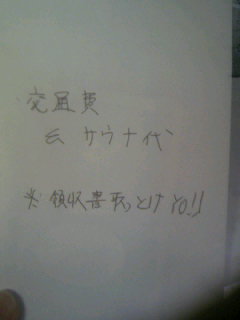 交通費
&サウナ代
※領収書取っとけYO!!